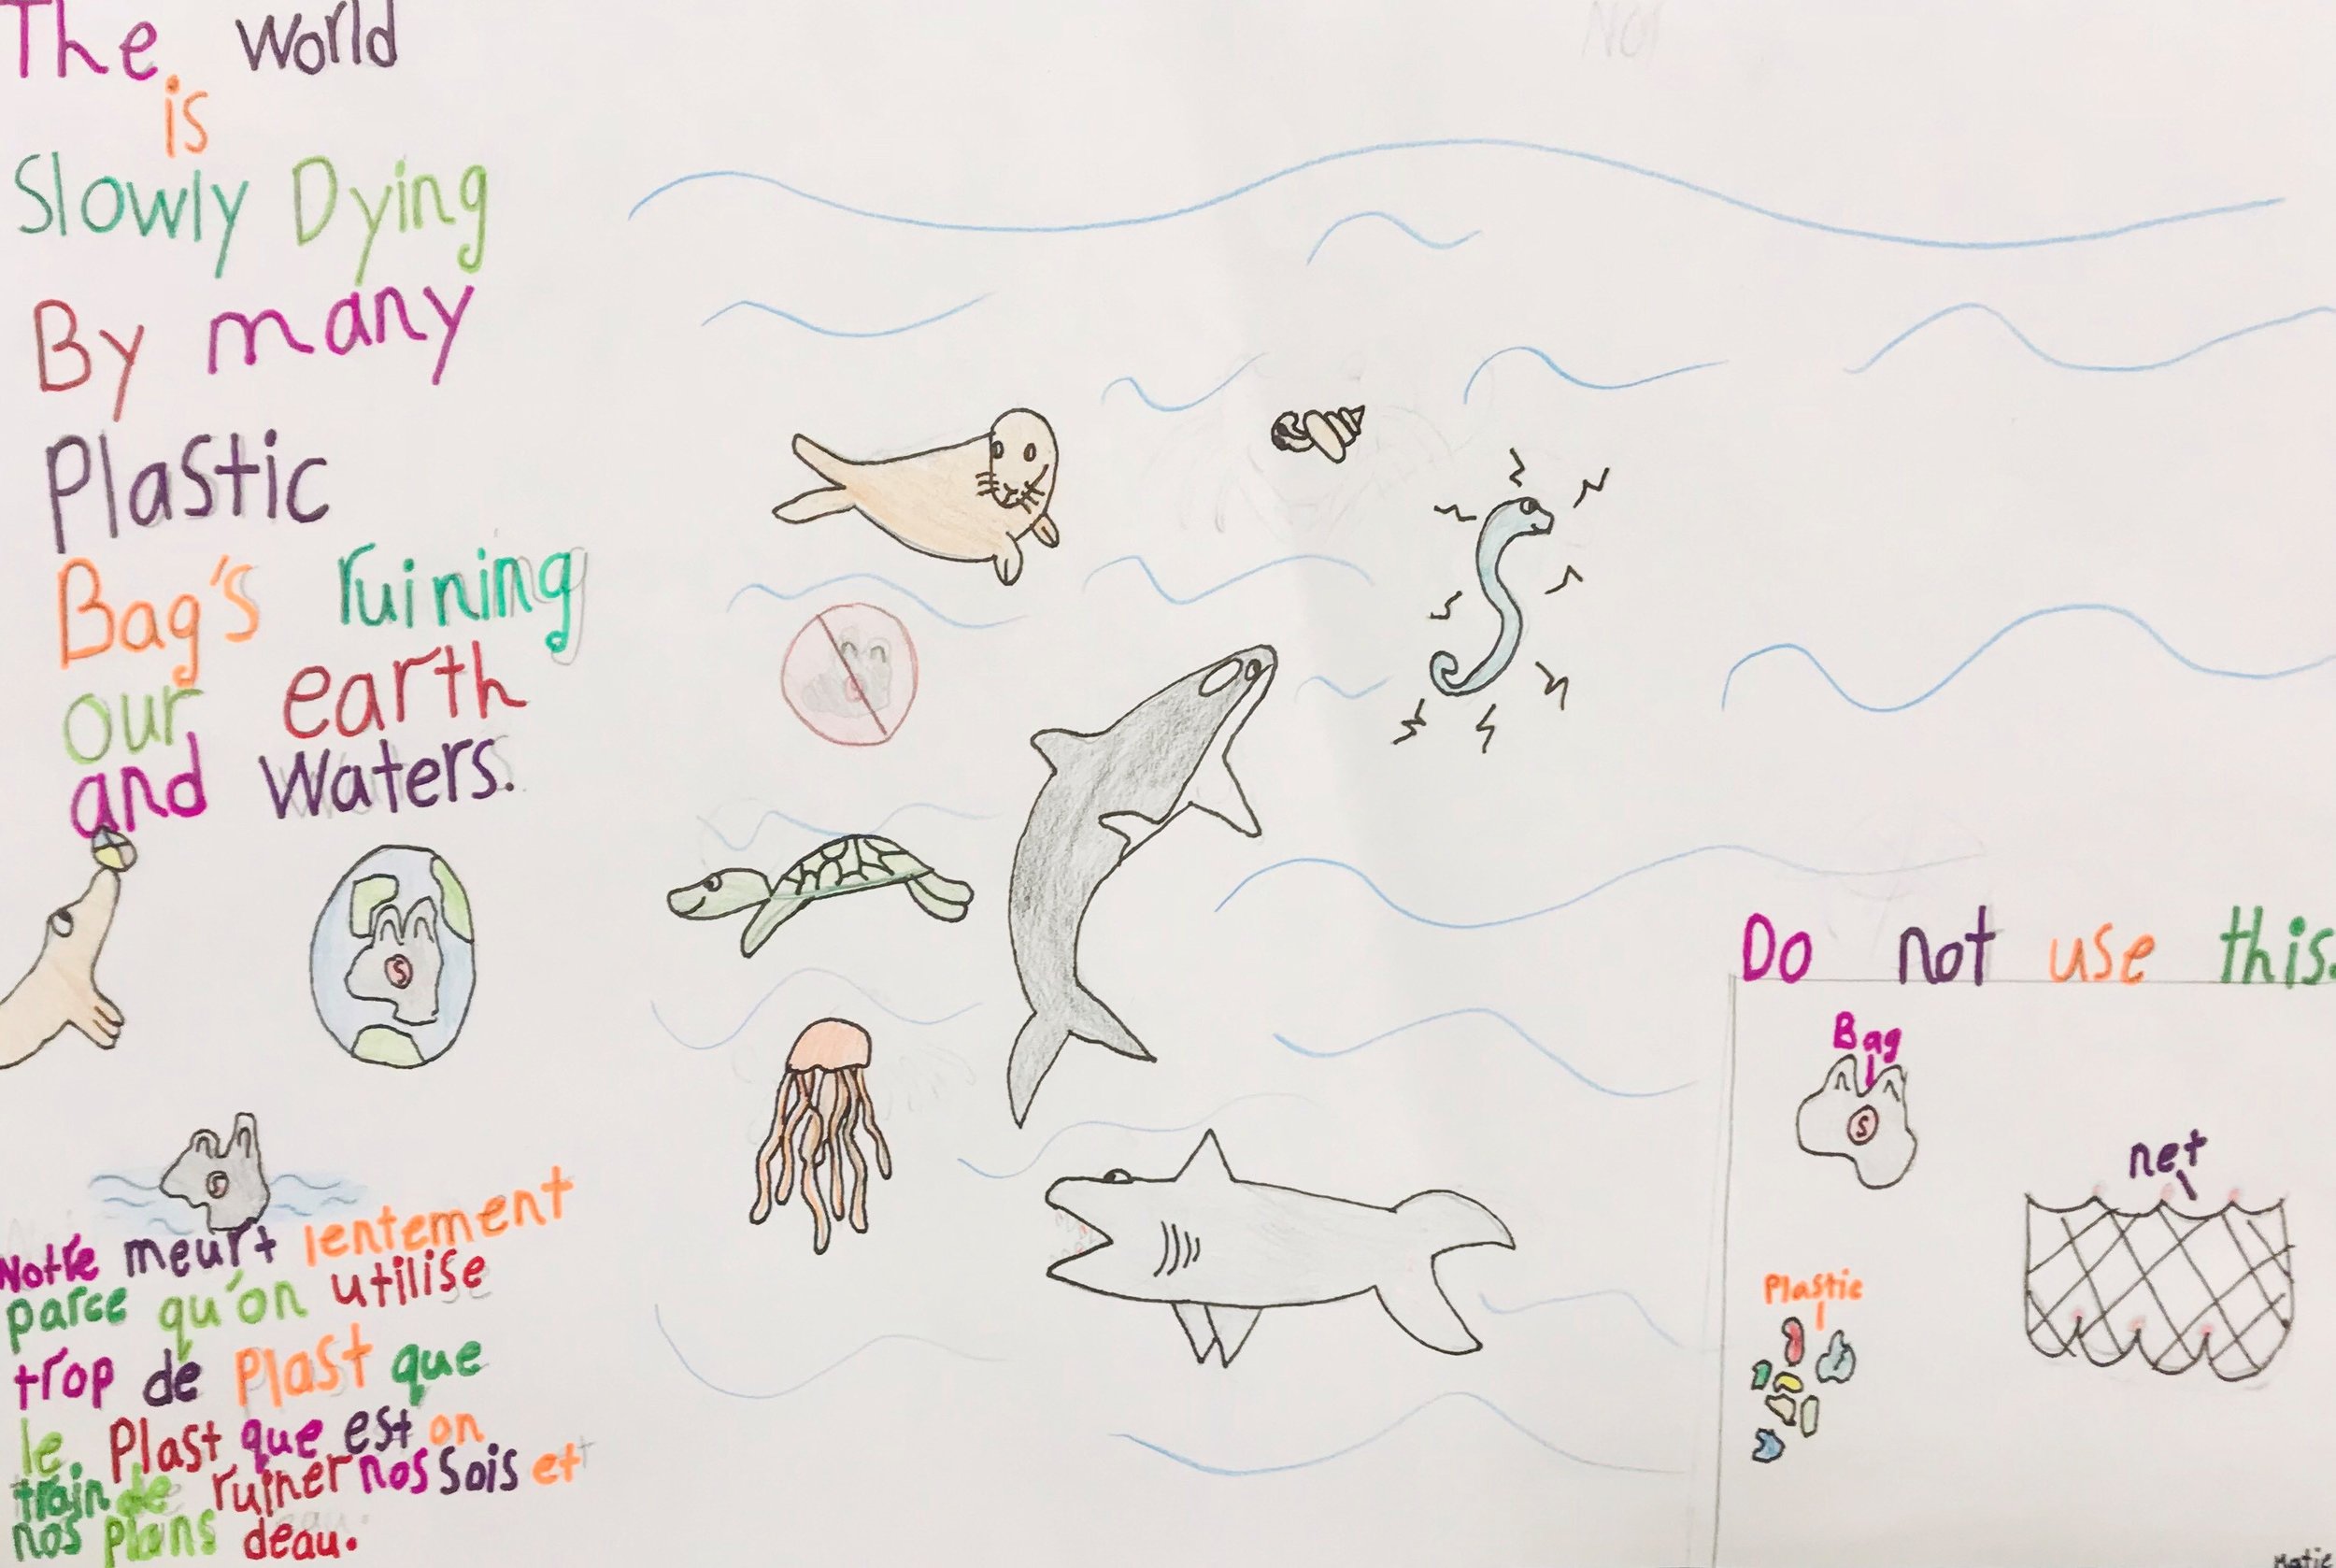 The World
is
Slowly Dying
By many
Plastic
Bag's ruining
our earth
and Waters.
S
S
Notre meurt lentement
parce qu'on utilise
trop de Plast que
le Plast que est on
train de ruiner nos Sois et
nos plans deau.
Do not use this.
Bag
S
net
Plastic